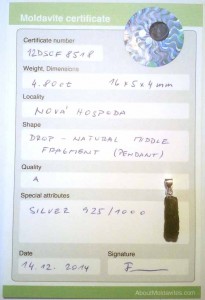 Moldavite certificate
Certificate number
12DSOF8518
Weight, Dimensions
4.80ct 16x5x4mm
Locality
NOVÁ HOSPODA
Shape
DROP - NATURAL MIDDLE
FRAGMENT (PENDANT)
Quality
A
Special attributes
SILVER 925/1000
Date
Signature
14.12.2014
AboutMoldavites.com